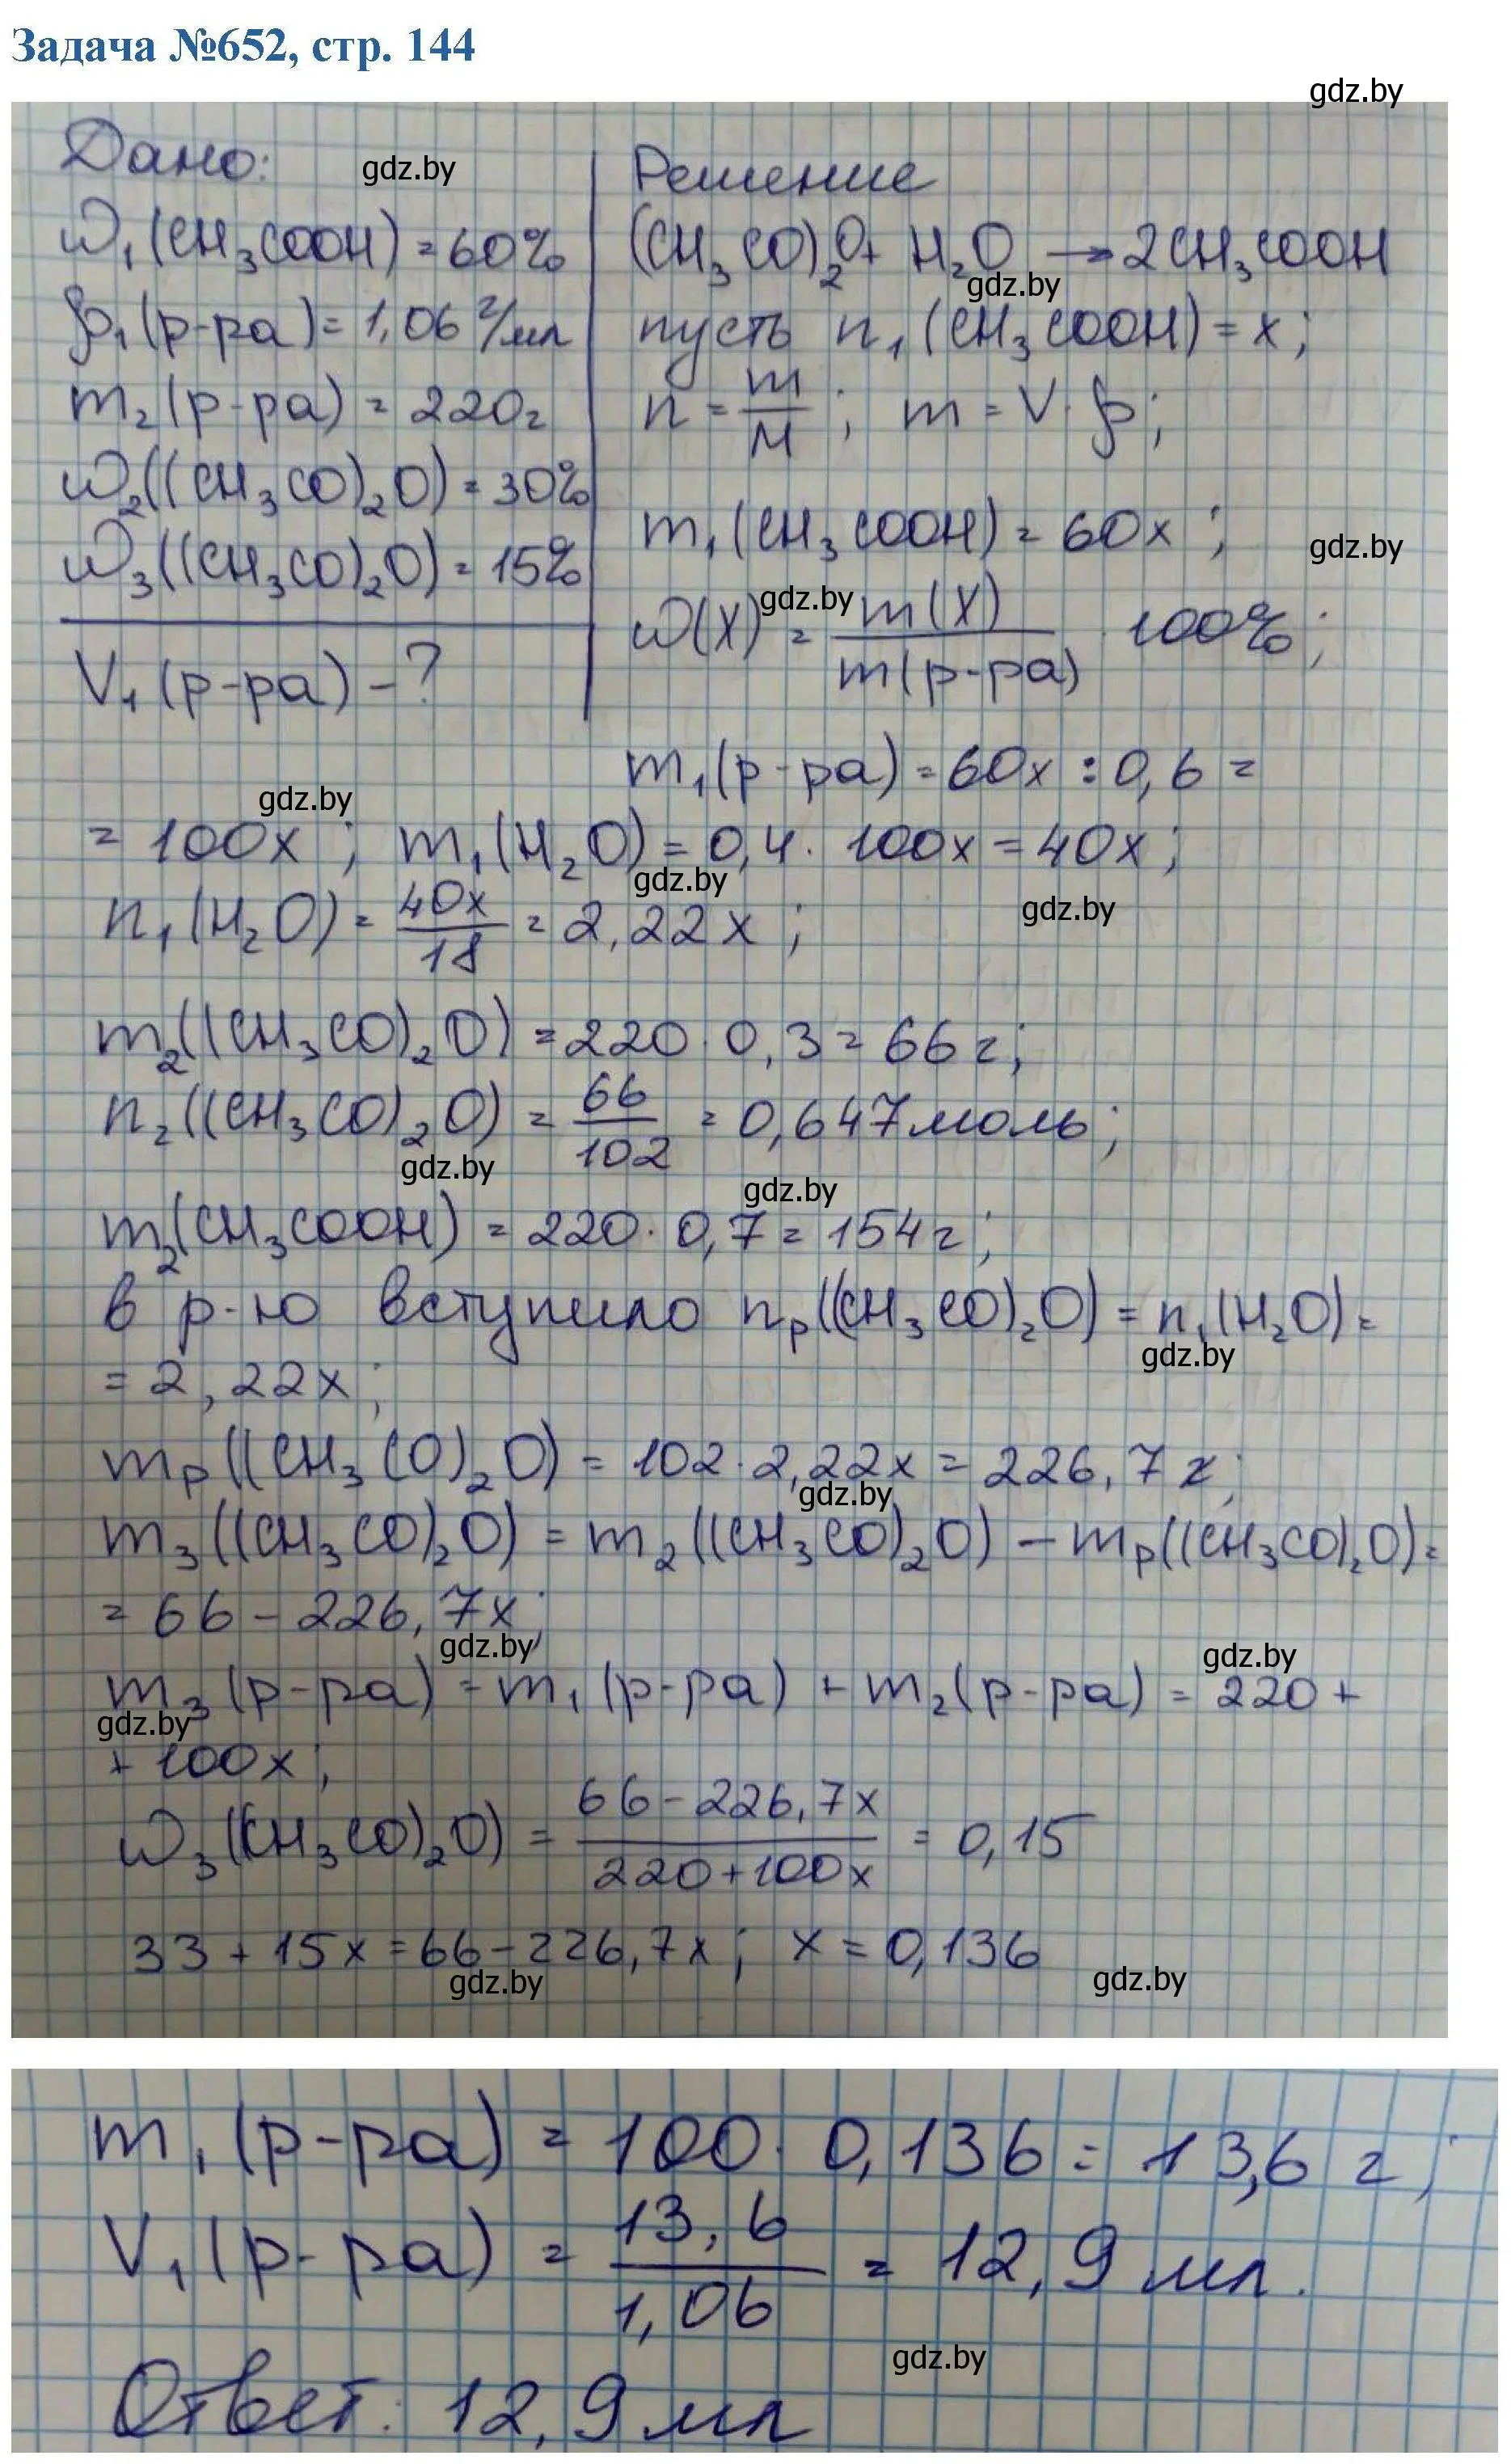 Задача №652, стр. 144
gdz.by
Дано:
gdz.by
ω₁(CH₃COOH) = 60%
ρ₁(р-ра) = 1,06 г/мл
m₂(р-ра) = 220г
ω₂((CH₃CO)₂O) = 30%
ω₃((CH₃CO)₂O) = 15%
V₁(р-ра) - ?
Решение
(CH₃CO)₂O + H₂O → 2CH₃COOH
gdz.by
пусть n₁(CH₃COOH) = x;
n = m/M ; m = V · ρ;
m₁(CH₃COOH) = 60x ;
gdz.by
gdz.by
ω(X) = m(X)/m(р-ра) · 100% ;
m₁(р-ра) = 60x : 0,6 =
gdz.by
= 100x ; m₁(H₂O) = 0,4 · 100x = 40x ;
gdz.by
gdz.by
n₁(H₂O) = 40x/18 = 2,22x ;
m₂((CH₃CO)₂O) = 220 · 0,3 = 66г;
n₂((CH₃CO)₂O) = 66/102 = 0,647моль;
gdz.by
gdz.by
m₂(CH₃COOH) = 220 · 0,7 = 154г;
в р-ю вступило nр((CH₃CO)₂O) = n₁(H₂O) =
gdz.by
= 2,22x ;
mр((CH₃CO)₂O) = 102 · 2,22x = 226,7x;
gdz.by
m₃((CH₃CO)₂O) = m₂((CH₃CO)₂O) - mр((CH₃CO)₂O) =
= 66 - 226,7x;
gdz.by
gdz.by
m₃(р-ра) = m₁(р-ра) + m₂(р-ра) = 220 +
gdz.by
+ 100x ;
ω₃((CH₃CO)₂O) = 66 - 226,7x/220 + 100x = 0,15
33 + 15x = 66 - 226,7x ; x = 0,136
gdz.by
gdz.by
m₁(р-ра) = 100 · 0,136 = 13,6 г ;
V₁(р-ра) = 13,6/1,06 = 12,9 мл.
gdz.by
Ответ: 12,9мл